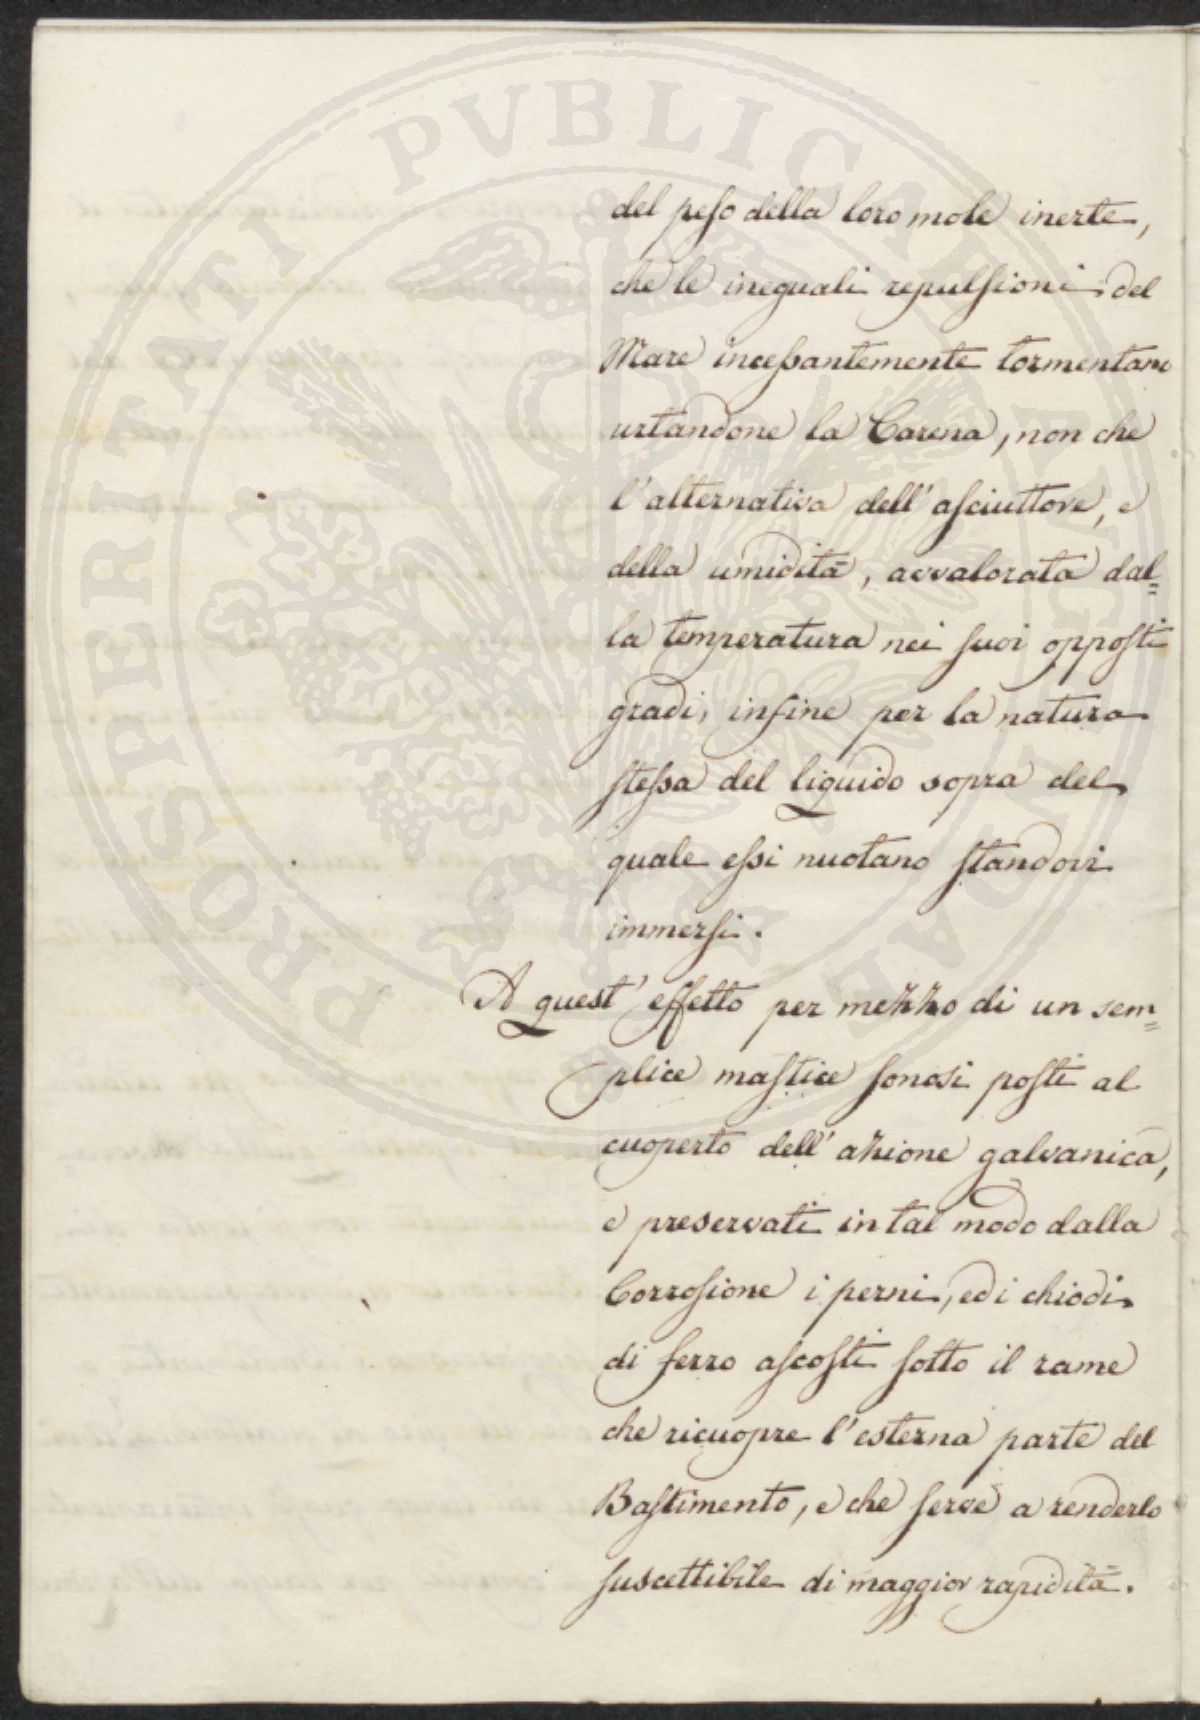 del peso della loro mole inerte,
che le ineguali repulsioni del
Mare incessantemente tormentano
urtandone la Carena, non che
l'alternativa dell'asciuttore, e
della umidità, avvalorata dal=
la temperatura nei suoi opposti
gradi, infine per la natura
stessa del liquido sopra del
quale essi nuotano standovi
immersi.
A quest'effetto per mezzo di un sem=
plice mastice sonosi posti al
cuoperto dell'azione galvanica,
e preservati in tal modo dalla
Corrosione i perni, ed i chiodi
di ferro ascosti sotto il rame
che ricuopre l'esterna parte del
Bastimento, e che serve a renderlo
suscettibile di maggior rapidità.
PROSPERITATI PVBLICAE AVGENDAE